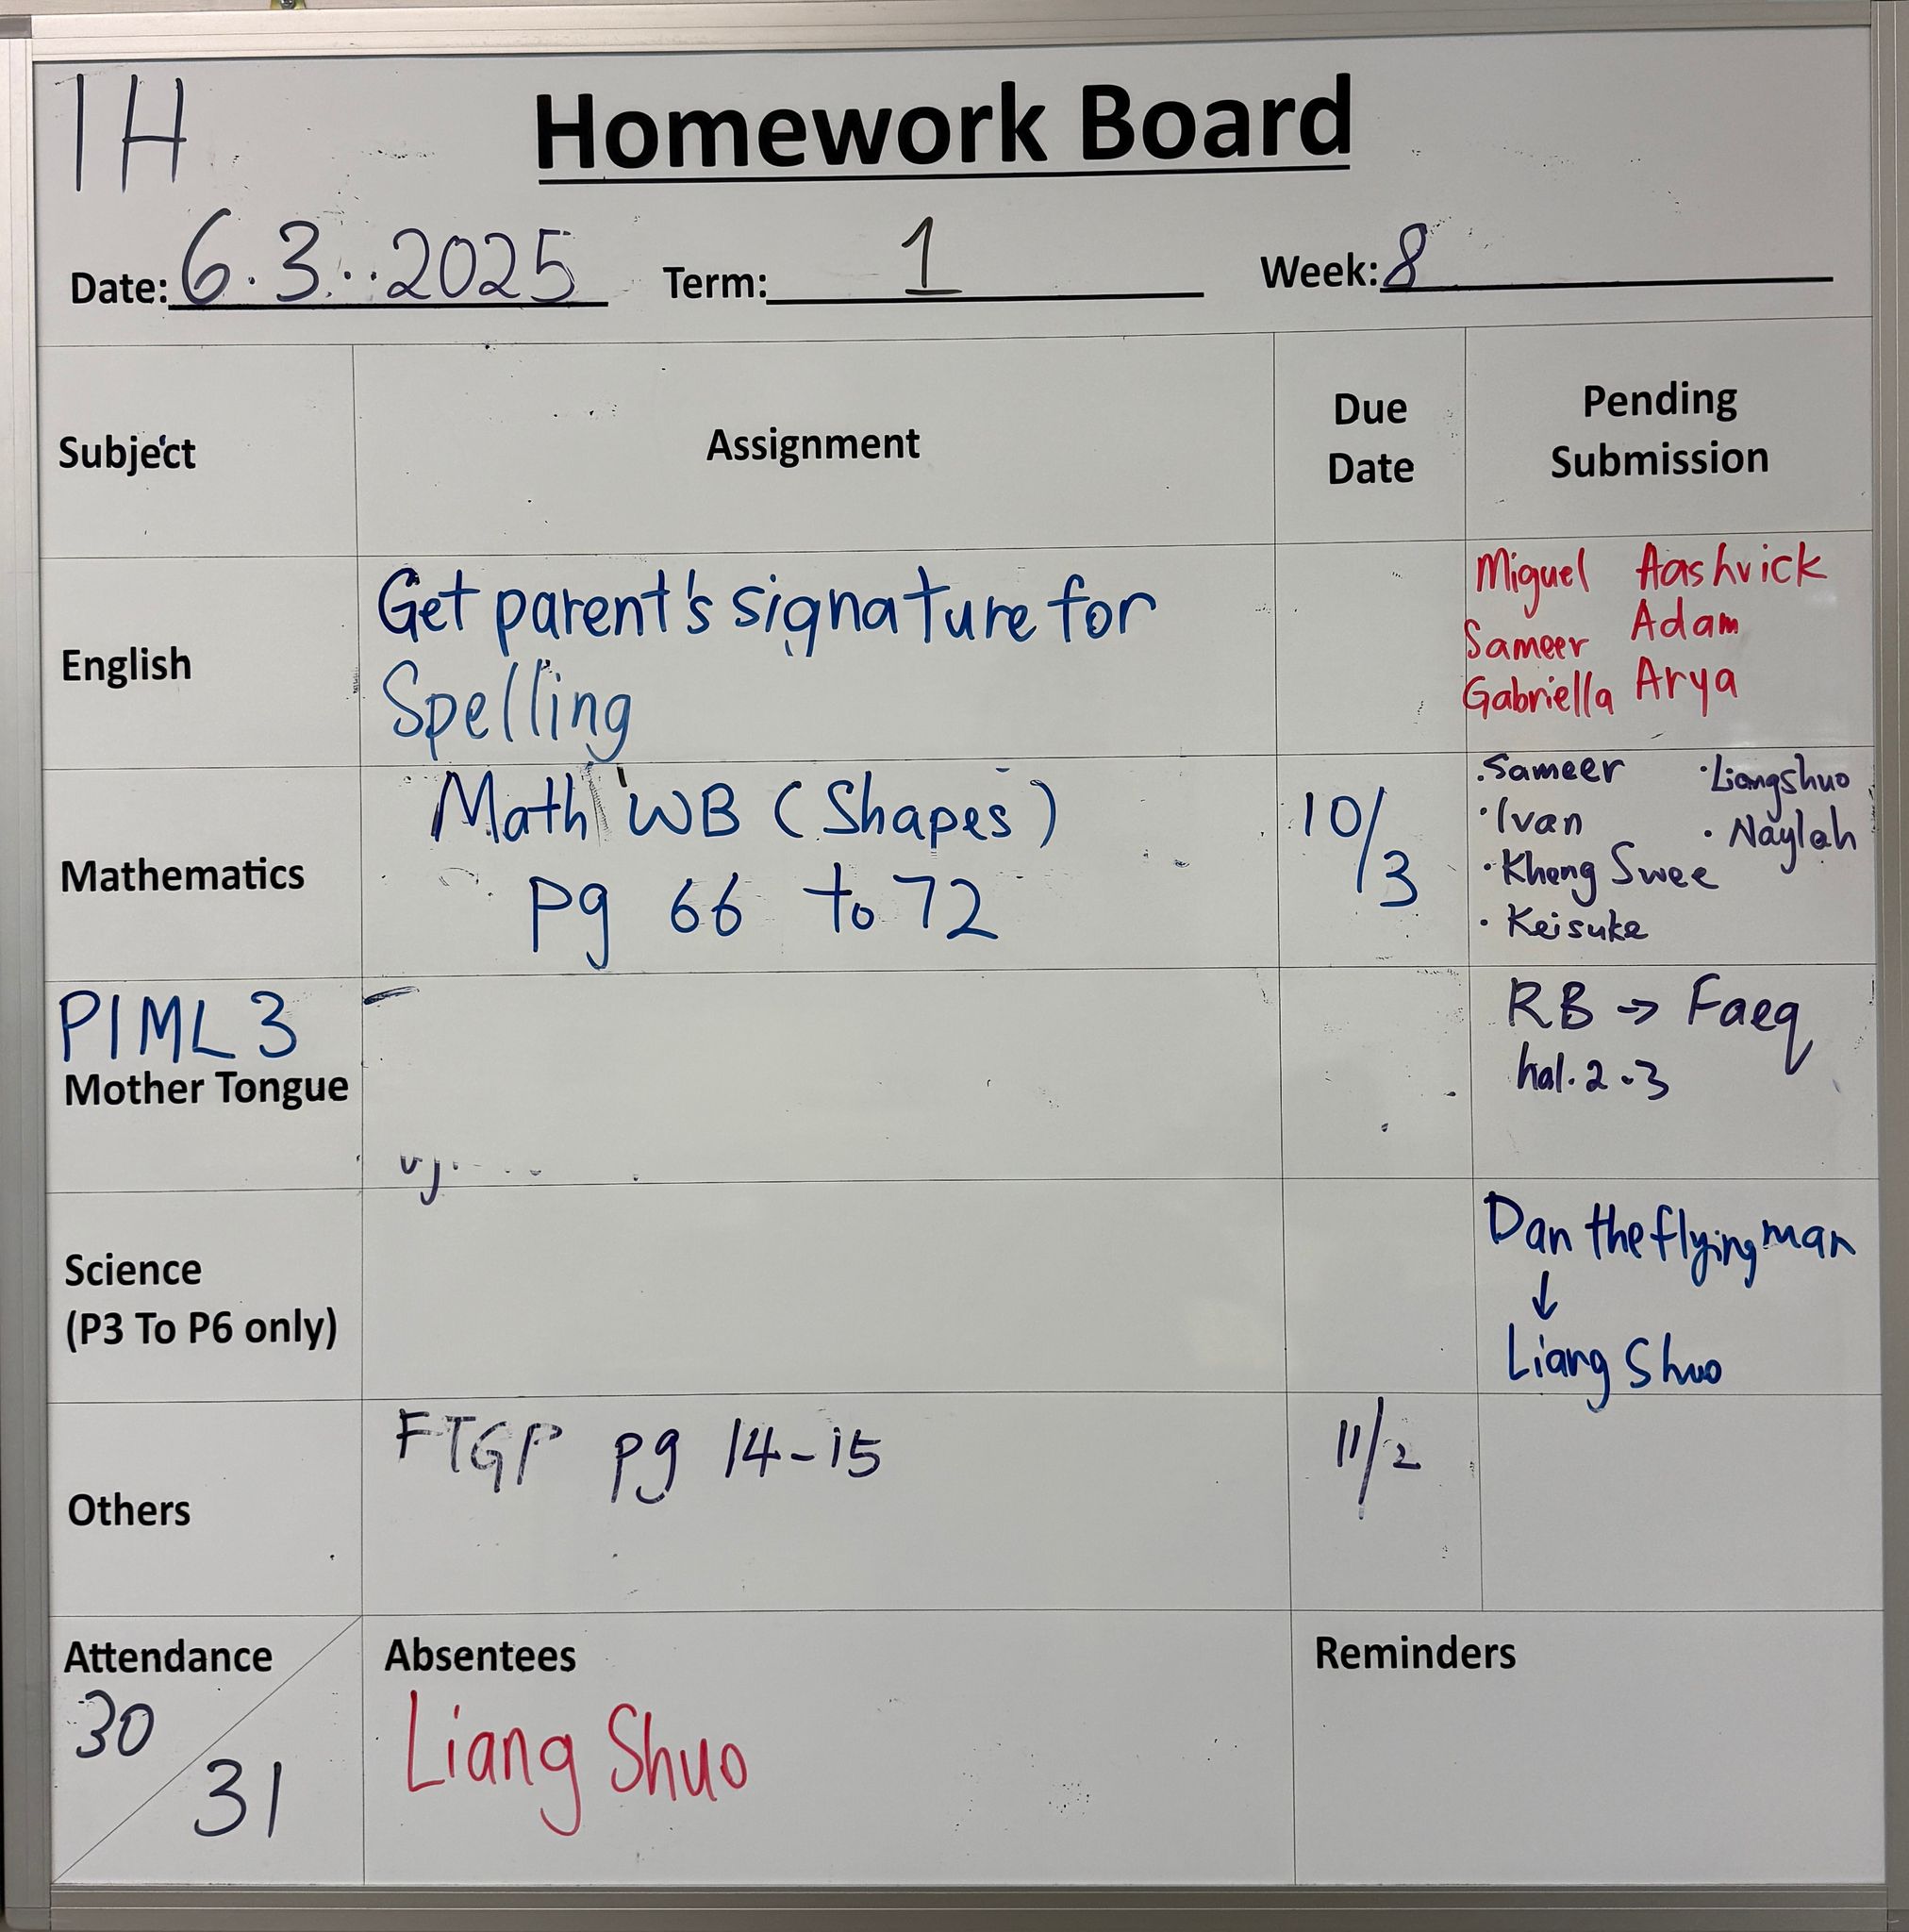 1H
Homework Board
Date: 6.3..2025 Term: 1 Week: 8
Subject Assignment Due Date Pending Submission
English
Get parent's signature for
Spelling
Miguel Aashvick
Sameer Adam
Gabriella Arya
Mathematics
Math WB (Shapes)
pg 66 to 72
10/3
.Sameer ·Liangshuo
·Ivan ·Naylah
·Kheng Swee
·Keisuke
PIML 3
Mother Tongue
RB → Faeq
hal.2-3
Science
(P3 To P6 only)
Dan the flying man
↓
Liang Shuo
Others
FTGP pg 14-15
11/2
Attendance
30
31
Absentees
Liang Shuo
Reminders